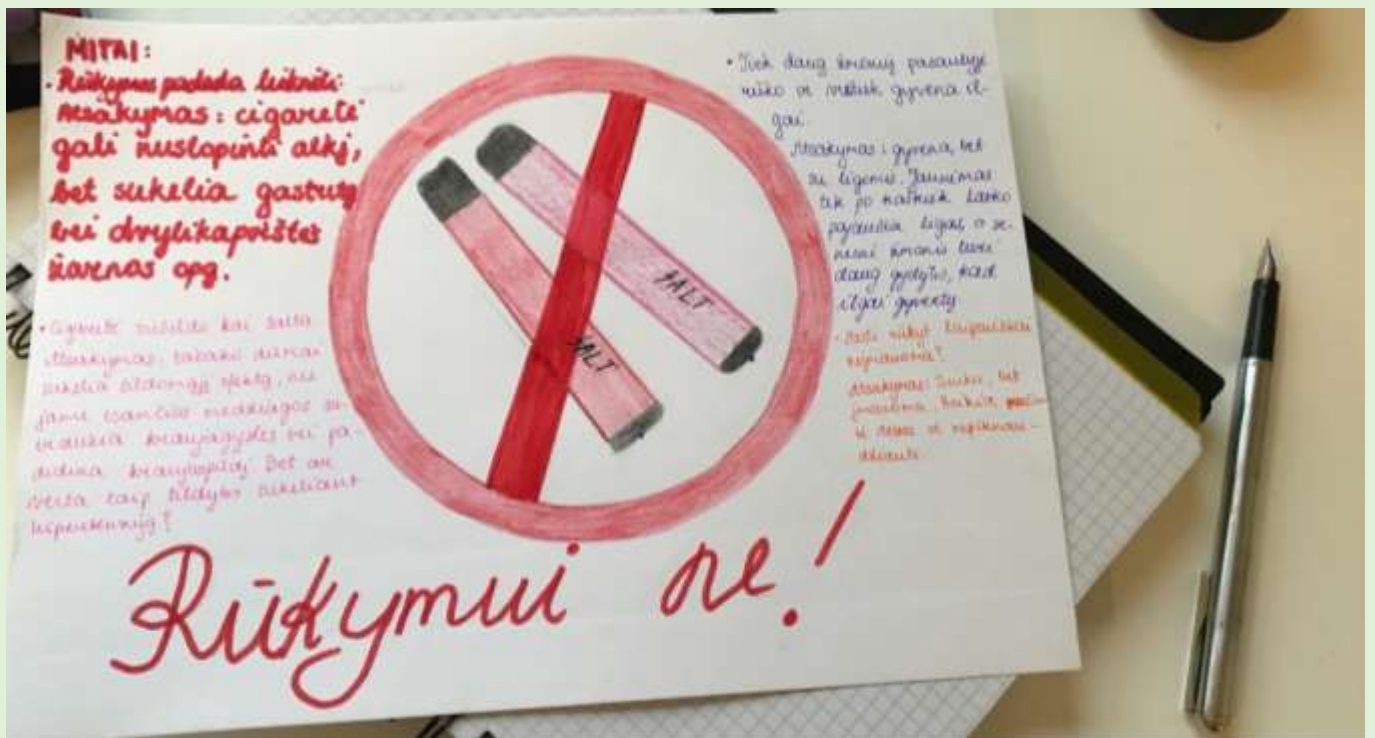 MITAI:
• Rūkymas padeda lieknėti.
Atsakymas: cigaretė
gali nuslopinti alkį,
bet sukelia gastritą
bei dvylikapirštės
žarnos opą.
• Cigaretė sušildo kai šalta.
Atsakymas: tabako dūmai
sukelia šildomąjį efektą, nes
jame esančios medžiagos su-
traukia kraujagysles bei pa-
didina kraujospūdį. Bet ar
verta taip šildytis sukeliant
hipertenziją?
SALT
SALT
• Tiek daug žmonių pasaulyje
rūko ir vistiek gyvena il-
gai.
Atsakymas: gyvena, bet
su ligomis. Jaunimas
tik po kažkiek laiko
pajaučia ligas, o se-
nesni žmonės turi
daug gydytis, kad
ilgai gyventų
• Mesti rūkyt
neįmanoma?
Atsakymas: Sunku, bet
įmanoma. Reikia
ir
Rūkymui ne!